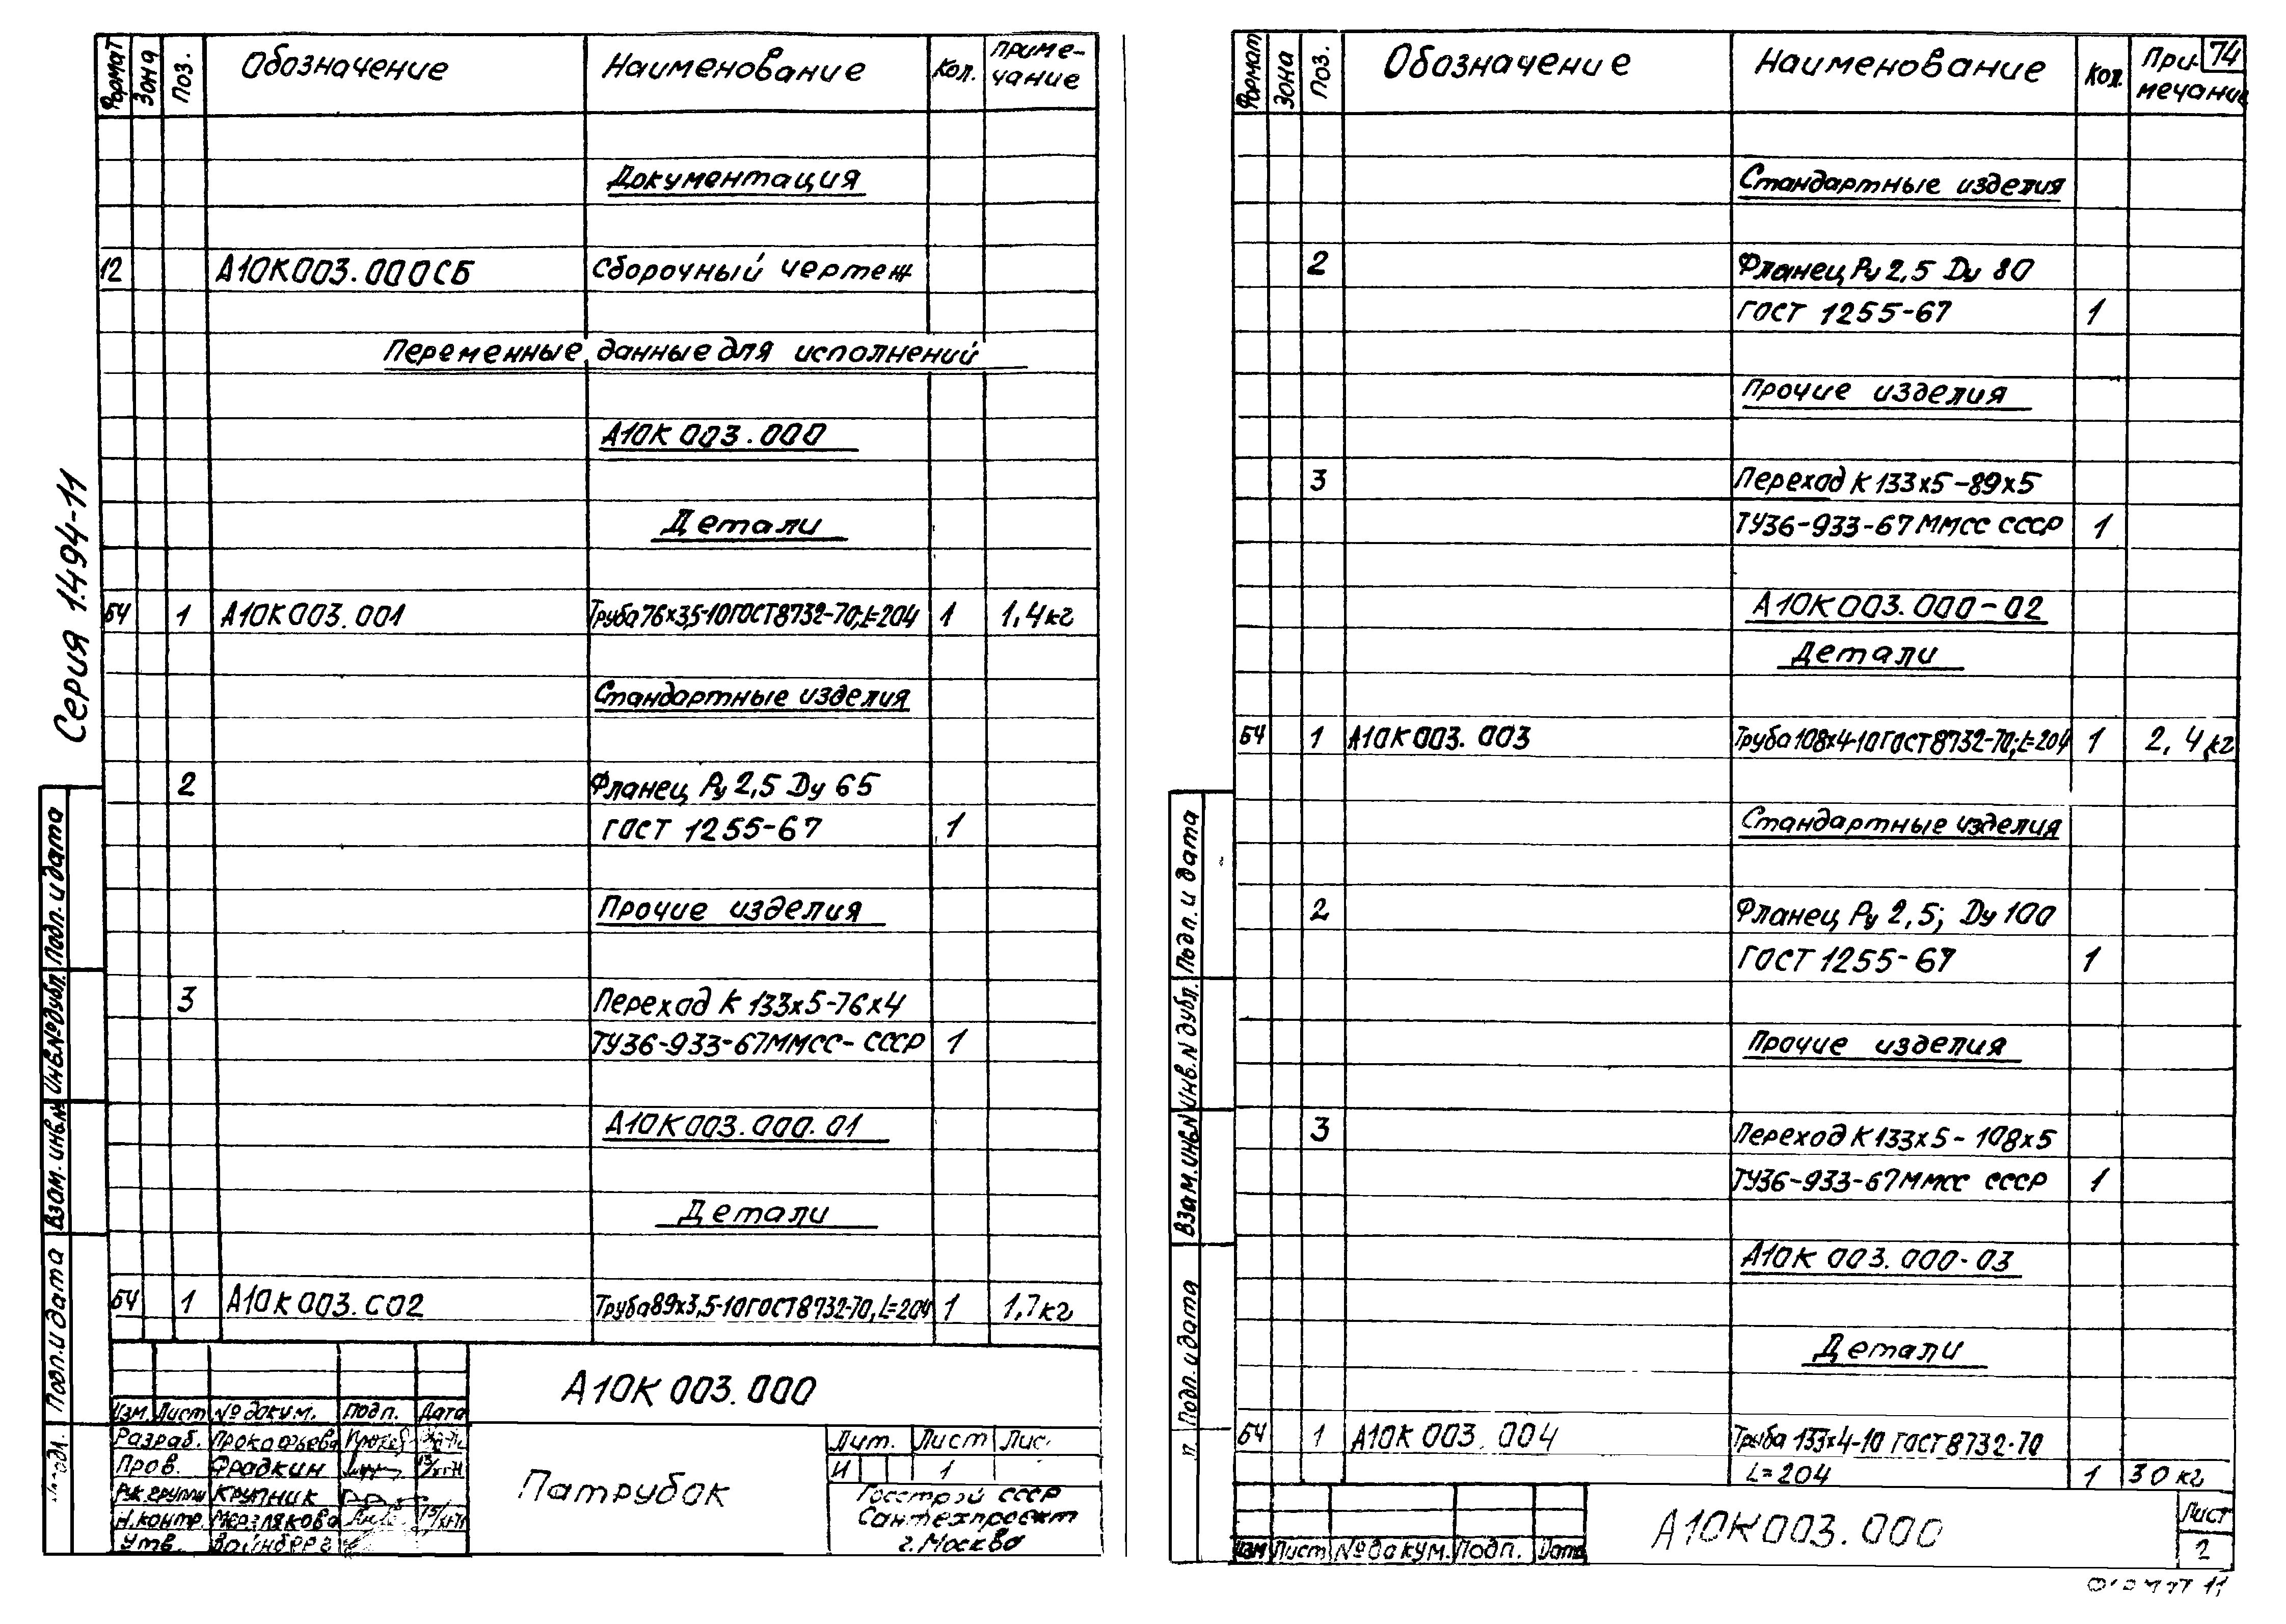 Серия 1.494-11
Формат Зона Поз. Обозначение Наименование Кол. Приме-
чание
Документация
12 А10К003.000СБ Сборочный чертеж
Переменные данные для исполнений
А10К003.000
Детали
БЧ 1 А10К003.001 Труба76х3,5-10ГОСТ8732-70;L=204 1 1,4кг
Стандартные изделия
2 Фланец Ру 2,5 Dу 65
ГОСТ 1255-67 1
Прочие изделия
3 Переход К 133х5-76х4
ТУ36-933-67ММСС-СССР 1
А10К003.000.01
Детали
БЧ 1 А10К003.С02 Труба89х3,5-10ГОСТ8732-70,L=204 1 1,7кг
Подп. и дата
Инв.№дубл.
Взам.инв.№
Подп.и дата
А10К003.000
Изм. Лист № докум. Подп. Дата
Разраб. Прокофьева
Пров. Фрадкин
Рук.группы Крупник
Н.контр. Мерзлякова
Утв. Вайнберг
Патрубок
Лит. Лист Лис
И 1
Госстрой СССР
Сантехпроект
г.Москва
74
Формат Зона Поз. Обозначение Наименование Кол. При-
мечание
Стандартные изделия
2 Фланец Ру 2,5 Dу 80
ГОСТ 1255-67 1
Прочие изделия
3 Переход К 133х5-89х5
ТУ36-933-67ММСС СССР 1
А10К003.000-02
Детали
БЧ 1 А10К003.003 Труба108х4-10ГОСТ8732-70;L=204 1 2,4кг
Стандартные изделия
2 Фланец Ру 2,5; Dу 100
ГОСТ 1255-67 1
Прочие изделия
3 Переход К133х5-108х5
ТУ36-933-67ММСС СССР 1
А10К 003.000-03
Детали
БЧ 1 А10К 003.004 Труба 133х4-10 ГОСТ8732-70
L=204 1 30кг
Подп. и дата
Инв.N дубл.
Взам.инв.N
Подп. и дата
Изм Лист № докум. Подп. Дата
А10К003.000
Лист
2